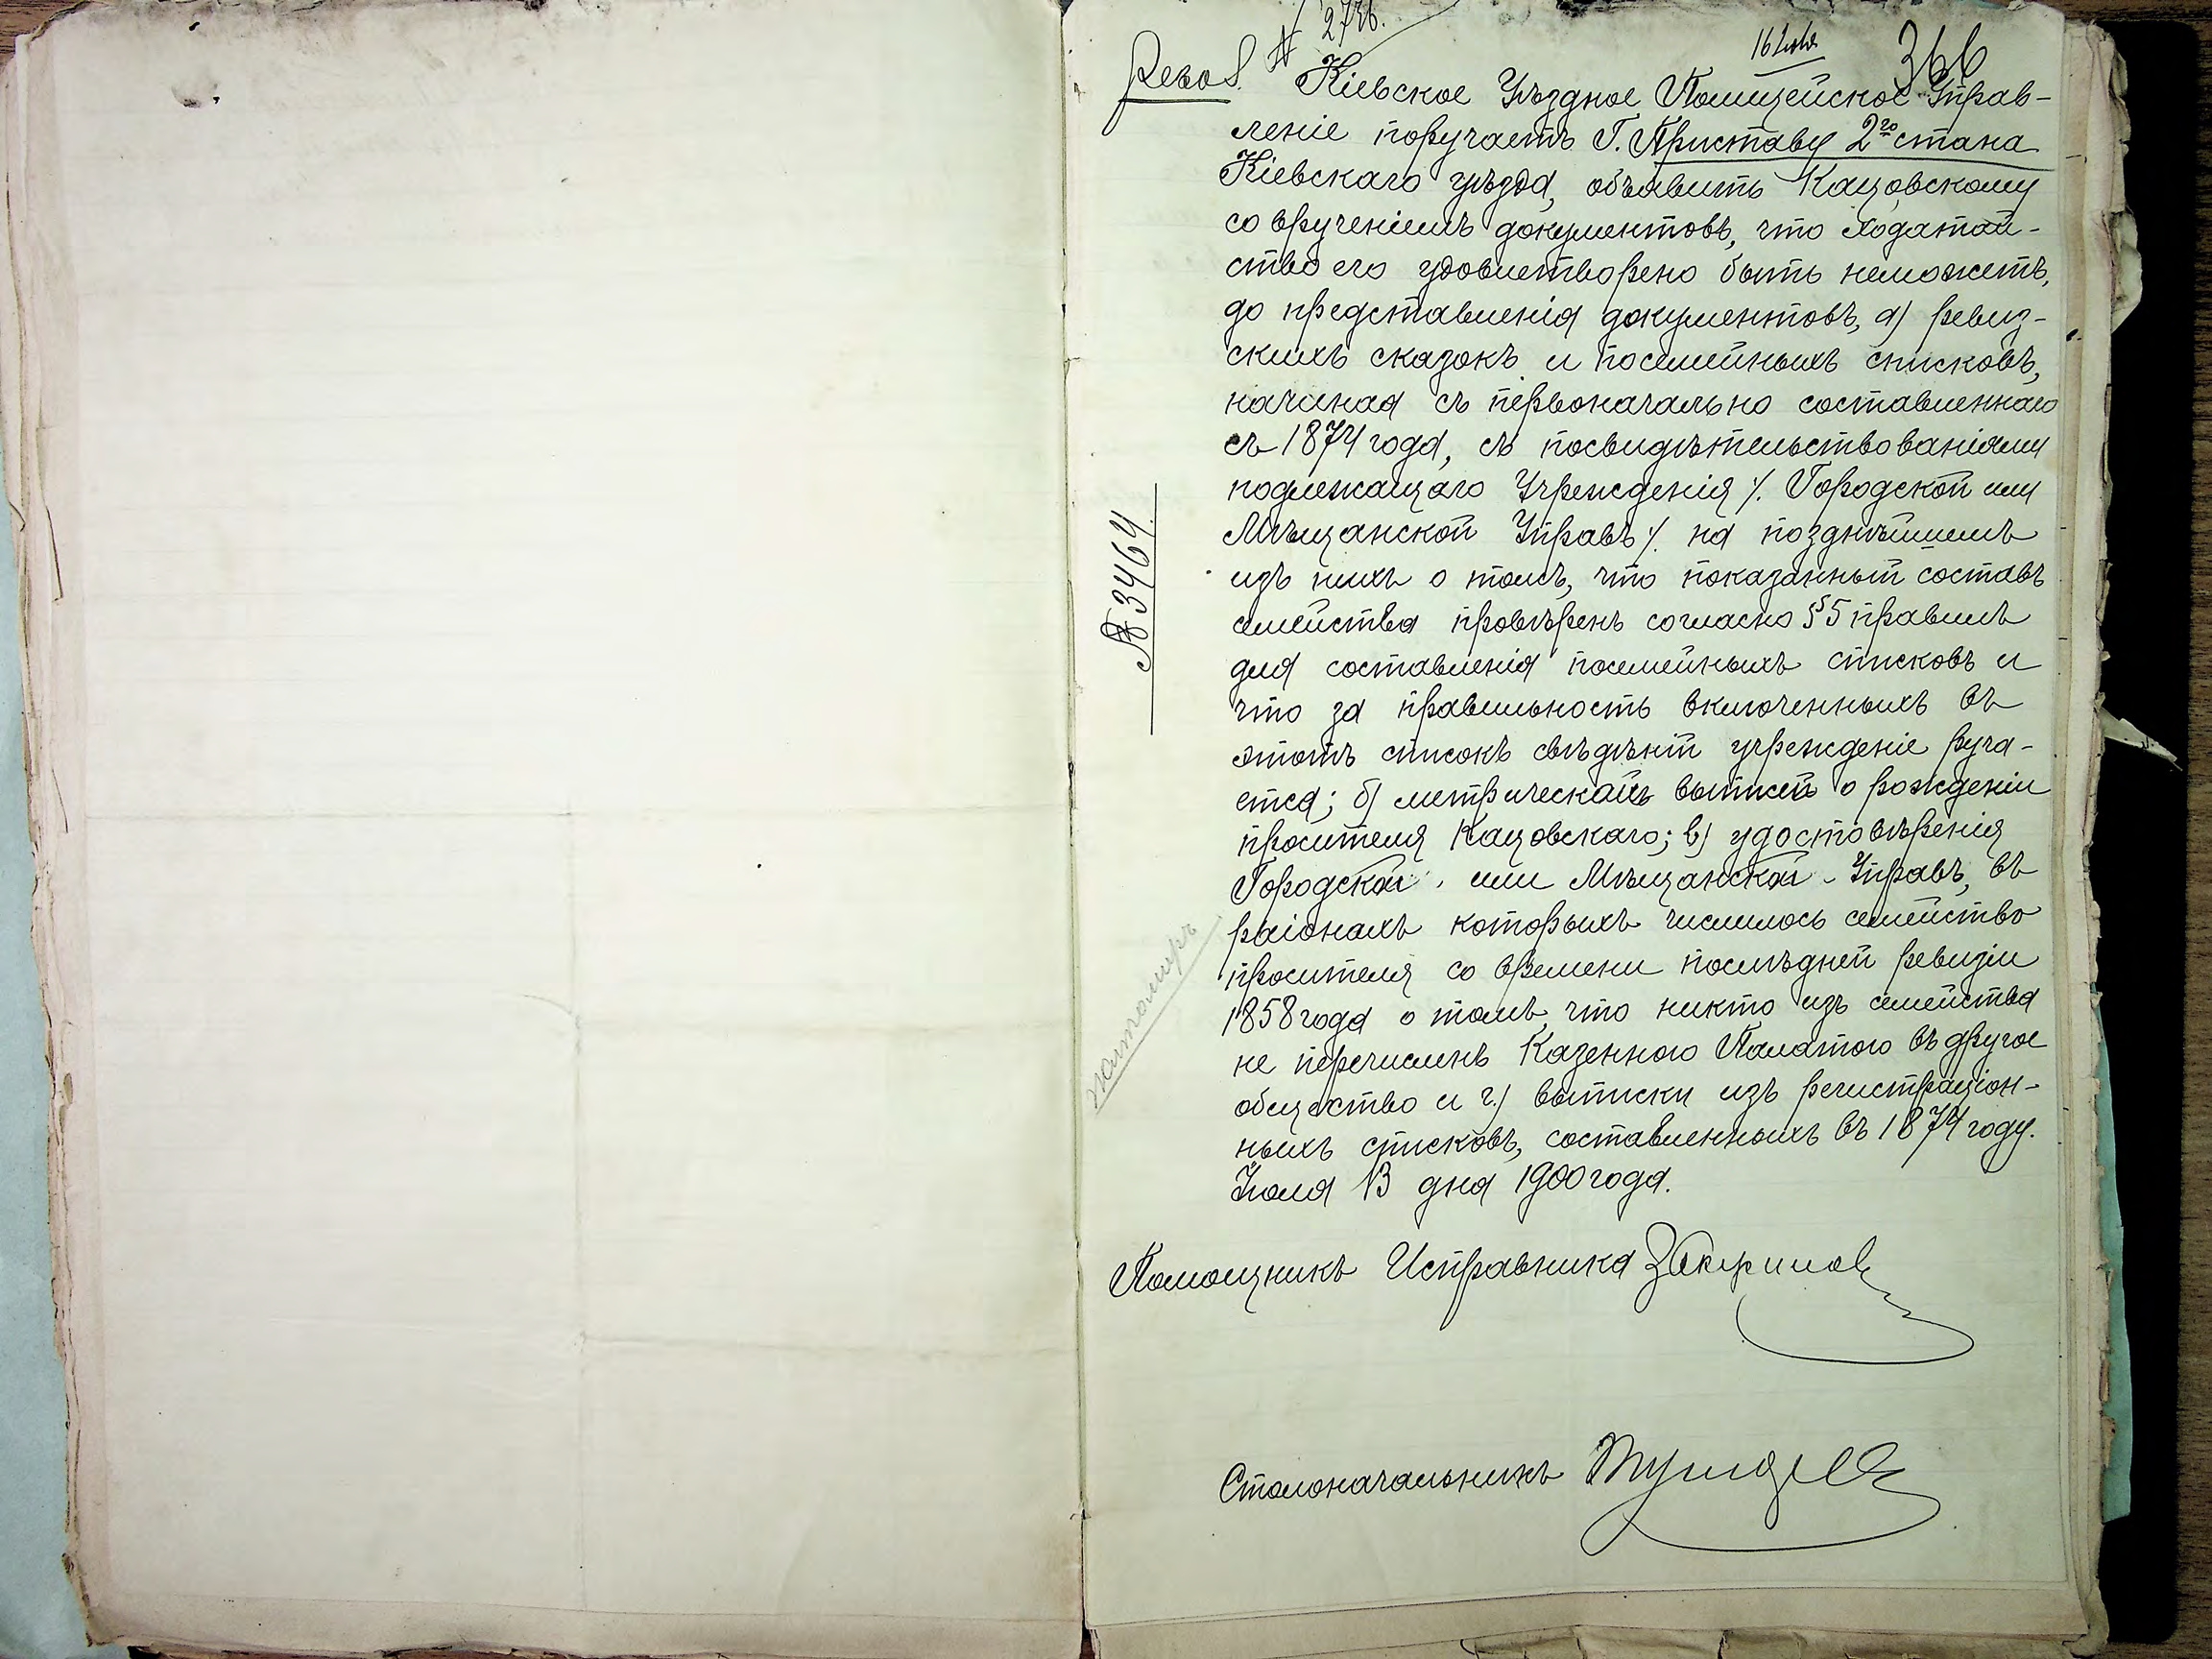 № 2726.
16 Іюля
366
Кіевское Уѣздное Полицейское Управ-
леніе поручаетъ Г. Приставу 2го стана
Кіевскаго уѣзда, объявить Кацовскому
со врученіемъ документовъ, что ходатай-
ство его удовлетворено быть неможетъ,
до представленія документовъ, а) ревиз-
скихъ сказокъ и посемейныхъ списковъ,
начиная съ первоначально составленнаго
съ 1874 года, съ посвидѣтельствованіями
подлежащаго Учрежденія ./. Городской или
Мѣщанской Управъ ./. на позднѣйшемъ
изъ нихъ о томъ, что показанный составъ
семейства провѣренъ согласно § 5 правилъ
для составленія посемейныхъ списковъ и
что за правильность включенныхъ въ
этотъ списокъ свѣдѣній учрежденіе руча-
ется; б) метрической выписи о рожденіи
просителя Кацовскаго; в) удостовѣренія
Городской или Мѣщанской Управъ, въ
раіонахъ которыхъ числилось семейство
просителя со времени послѣдней ревизіи
1858 года о томъ, что никто изъ семейства
не перечисленъ Казенною Палатою въ другое
общество и г.) выписки изъ регистраціон-
ныхъ списковъ, составленныхъ въ 1874 году.
Іюля 13 дня 1900 года.
№ 3464.
Житомиръ
Помощникъ Исправника
Столоначальникъ